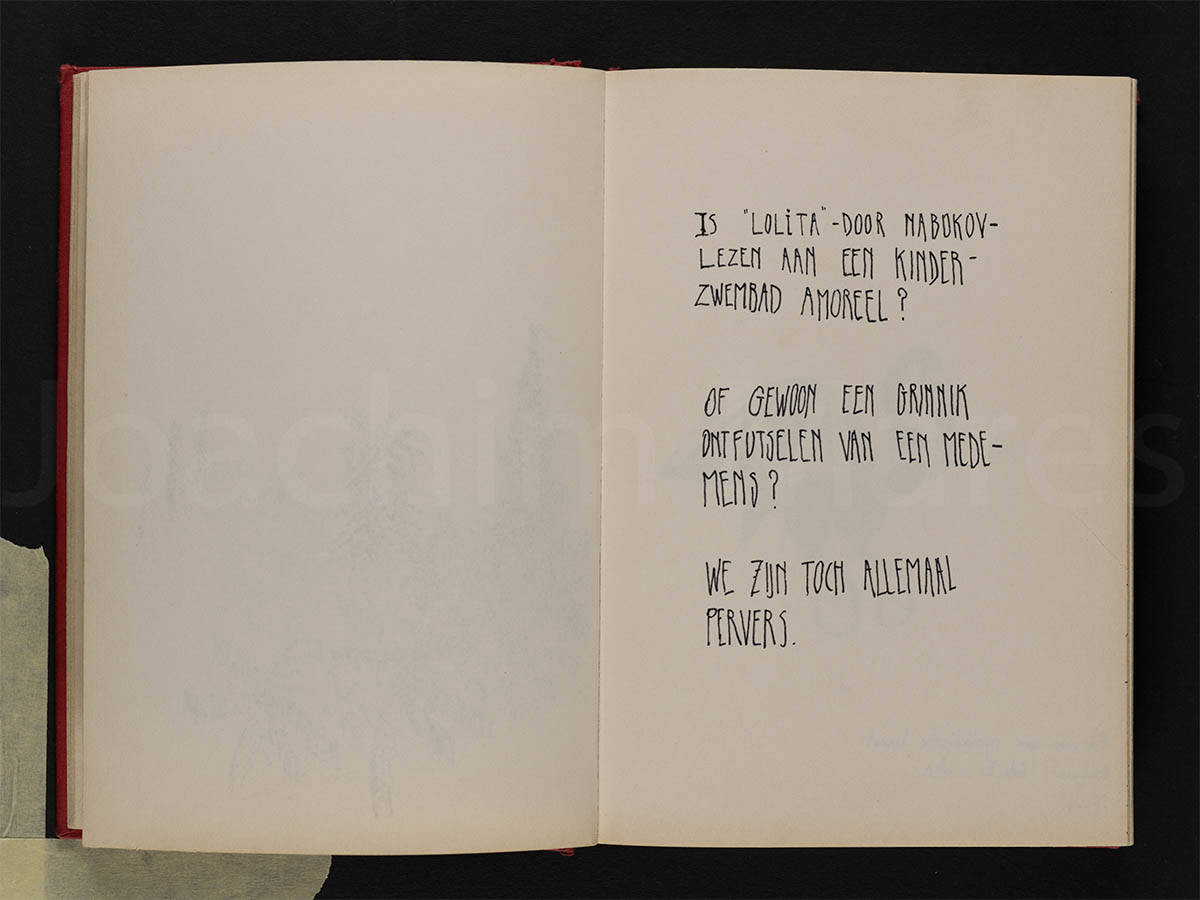 Is "LOLiTA" -DOOR NABOKOV-
LEZEN AAN EEN KINDER-
ZWEMBAD AMOREEL?
OF GEWOON EEN GRINNIK
ONTFUTSELEN VAN EEN MEDE-
MENS?
WE ZIJN TOCH ALLEMAAL
PERVERS.
Joachim